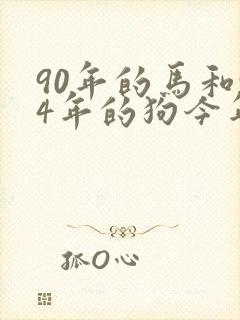 90年的馬和
4年的狗今
狐O心